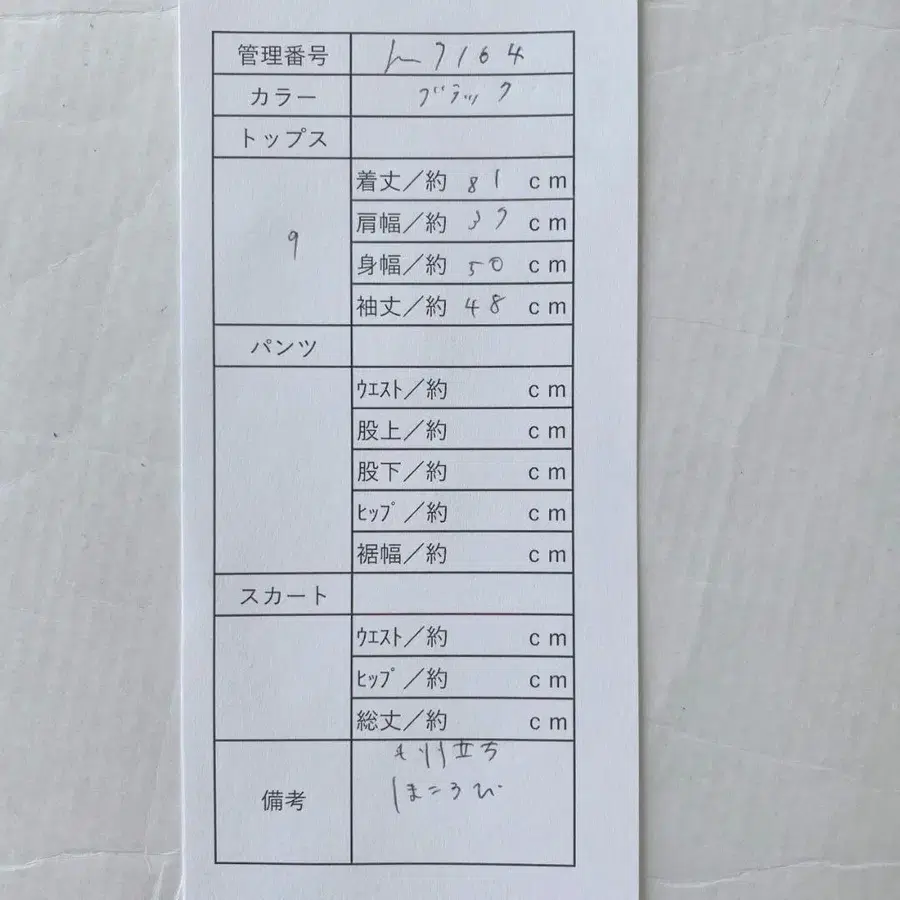 管理番号 h7164
カラー ブラック
トップス
9
着丈／約 81 cm
肩幅／約 37 cm
身幅／約 50 cm
袖丈／約 48 cm
パンツ
ウエスト／約 cm
股上／約 cm
股下／約 cm
ヒップ／約 cm
裾幅／約 cm
スカート
ウエスト／約 cm
ヒップ／約 cm
総丈／約 cm
備考
毛羽立ち
ほころび